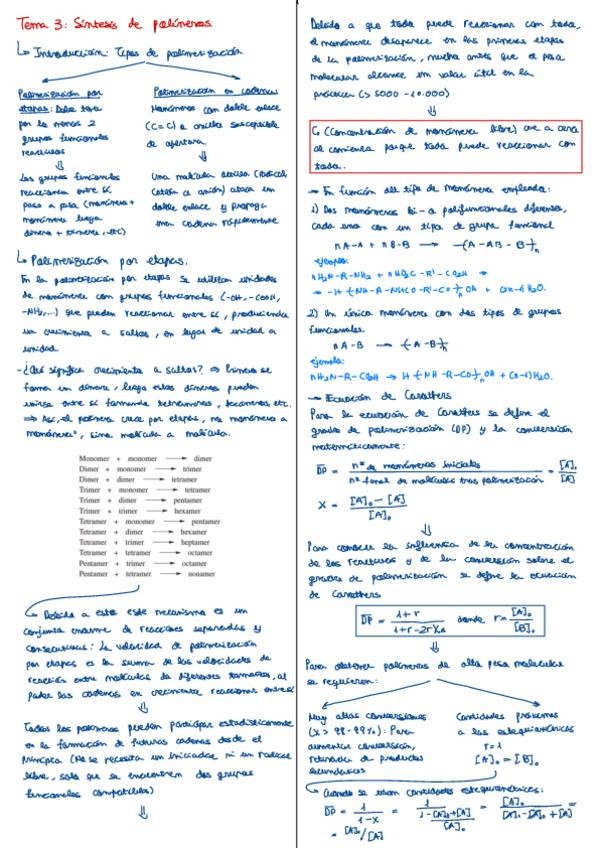 Tema 3: Síntesis de polímeros.
Introducción: Tipos de polimerización
Polimerización por
etapas: Debe tener
por lo menos 2
grupos funcionales
reactivos
Los grupos funcionales
reaccionan entre sí,
paso a paso (monómero +
monómero luego
dímero + trímero, etc)
Polimerización en cadena
Monómeros con doble enlace
(C=C) o anillo susceptible
de apertura.
Una molécula activa (radical,
catión o anión) ataca un
doble enlace y propaga
una cadena rápidamente
Polimerización por etapas.
En la polimerización por etapas se utilizan unidades
de monómero con grupos funcionales (-OH, -COOH,
-NH₂,...) que pueden reaccionar entre sí, produciendo
un crecimiento a saltos, en lugar de unidad a
unidad.
- ¿Qué significa crecimiento a saltos? ⇒ Primero se
forma un dímero, luego estos dímeros pueden
unirse entre sí formando tetrámeros, etc.
⇒ Así, el polímero crece por etapas, no monómero a
monómero, sino molécula a molécula.
Monomer + monomer → dimer
Dimer + monomer → trimer
Dimer + dimer → tetramer
Trimer + monomer → tetramer
Trimer + dimer → pentamer
Trimer + trimer → hexamer
Tetramer + monomer → pentamer
Tetramer + dimer → hexamer
Tetramer + trimer → heptamer
Tetramer + tetramer → octamer
Pentamer + trimer → octamer
Pentamer + tetramer → nonamer
Debido a esto este mecanismo es un
conjunto enorme de reacciones separadas y
consecutivas: La velocidad de polimerización
por etapas es la suma de las velocidades de
reacción entre moléculas de diferentes tamaños, al
poder las cadenas en crecimiento reaccionar entre sí
Todos los polímeros pueden participar estadísticamente
en la formación de futuras cadenas desde el
principio (No se necesita un iniciador ni un radical
libre, solo que se encuentren dos grupos
funcionales compatibles)
Debido a que todo puede reaccionar con todo,
el monómero desaparece en las primeras etapas
de la polimerización, mucho antes que el peso
molecular alcance un valor útil en la
práctica (> 5000 - 10.000)
C₀ (Concentración de monómero libre) cae a cero
al comienzo porque todo puede reaccionar con
todo.
→ En función del tipo de monómero empleado:
1) Dos monómeros bi- o polifuncionales diferentes,
cada uno con un tipo de grupo funcional
nA-A + nB-B → -(A-AB-B)-n
ejemplo:
nH₂N-R-NH₂ + nHO₂C-R'-CO₂H →
→ -H-(NH-R-NHCO-R'-CO-)nOH + (2n-1)H₂O.
2) Un único monómero con dos tipos de grupos
funcionales.
nA-B → -(A-B)-n
ejemplo:
nH₂N-R-CO₂H → H-(NH-R-CO-)nOH + (n-1)H₂O.
→ Ecuación de Carothers
Para la ecuación de Carothers se define el
grado de polimerización (DP) y la conversión
matemáticamente:
DP = nº de monómeros iniciales / nº final de moléculas tras polimerización = [A]₀ / [A]
X = [A]₀ - [A] / [A]₀
Para conocer la influencia de la concentración
de los reactivos y de la conversión sobre el
grado de polimerización se define la ecuación
de Carothers
DP = 1+r / 1+r-2rXA donde r = [A]₀ / [B]₀
Para obtener polímeros de alto peso molecular
se requieren:
Muy altas conversiones
(X > 98-99%): Para
aumentar conversión,
retirada de productos
secundarios
Cantidades próximas
a las estequiométricas
r = 1
[A]₀ = [B]₀
Cuando se usan cantidades estequiométricas:
DP = 1 / 1-X = 1 / 1 - [A]₀+[A] / [A]₀ = [A]₀ / [A]₀ - [A]₀ + [A] =
= [A]₀/[A]